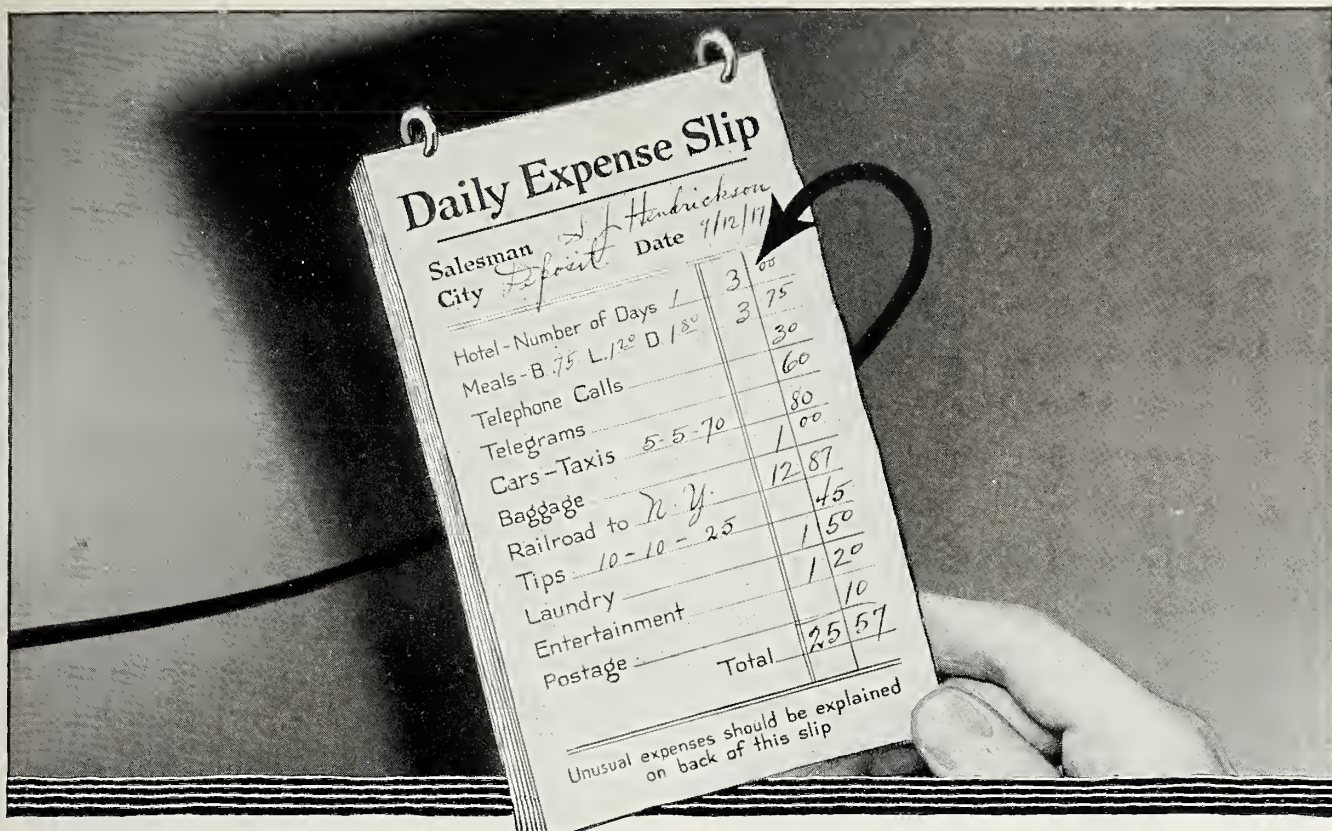 Daily Expense Slip
Salesman S J Hendrickson
City Deposit Date 9/12/17
Hotel-Number of Days 1 3 00
Meals-B. 75 L. 1 20 D. 1 80 3 75
Telephone Calls 30
Telegrams 60
Cars-Taxis 5-5-70 80
Baggage 1 00
Railroad to N.Y. 12 87
Tips 10-10-25 45
Laundry 1 50
Entertainment 1 20
Postage 10
Total 25 57
Unusual expenses should be explained
on back of this slip